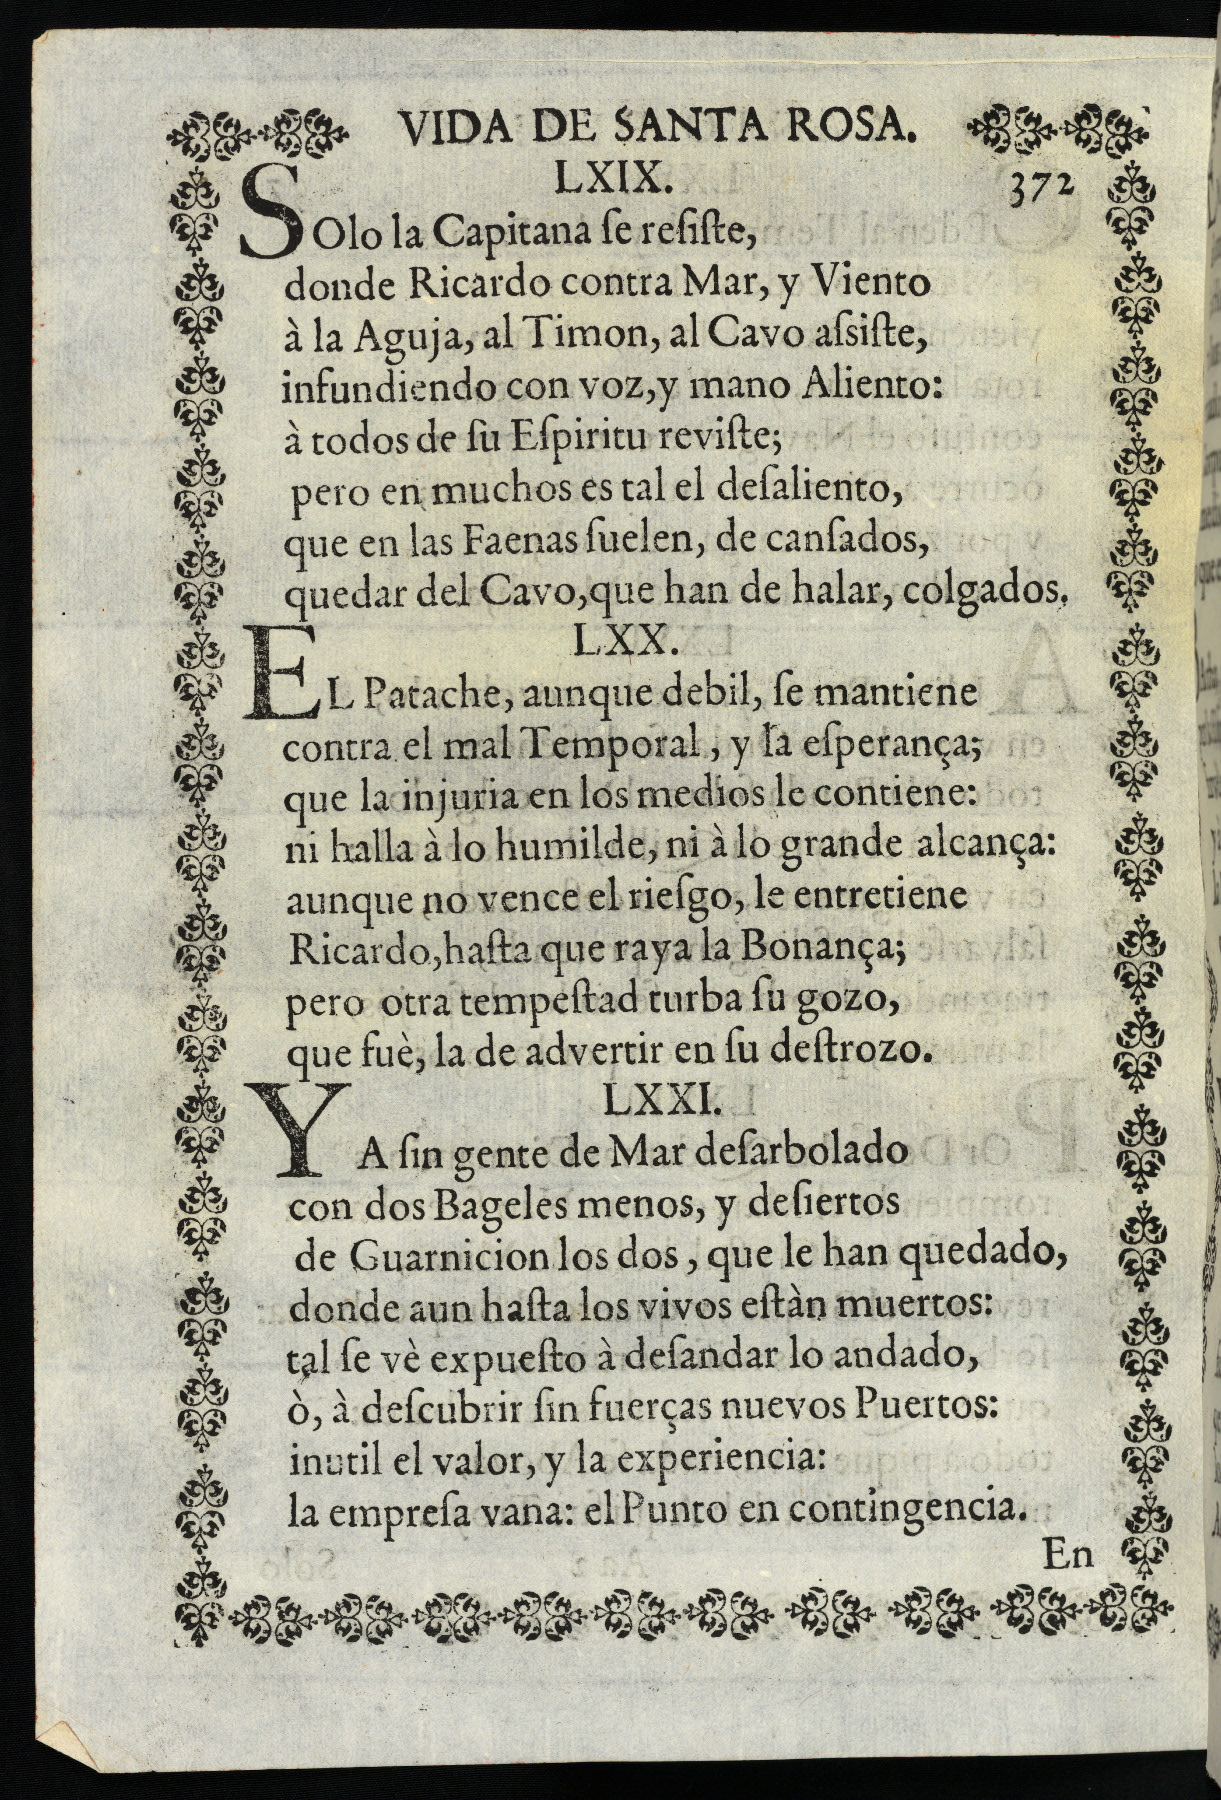 VIDA DE SANTA ROSA.
LXIX.
372
SOlo la Capitana ſe reſiſte,
donde Ricardo contra Mar, y Viento
à la Aguja, al Timon, al Cavo aſsiſte,
infundiendo con voz,y mano Aliento:
à todos de ſu Eſpiritu reviſte;
pero en muchos es tal el deſaliento,
que en las Faenas ſuelen, de canſados,
quedar del Cavo,que han de halar, colgados.
LXX.
EL Patache, aunque debil, ſe mantiene
contra el mal Temporal, y la eſperança;
que la injuria en los medios le contiene:
ni halla à lo humilde, ni à lo grande alcança:
aunque no vence el rieſgo, le entretiene
Ricardo,haſta que raya la Bonança;
pero otra tempeſtad turba ſu gozo,
que fuè, la de advertir en ſu deſtrozo.
LXXI.
YA ſin gente de Mar deſarbolado
con dos Bageles menos, y deſiertos
de Guarnicion los dos, que le han quedado,
donde aun haſta los vivos eſtàn muertos:
tal ſe vè expueſto à deſandar lo andado,
ò, à deſcubrir ſin fuerças nuevos Puertos:
inutil el valor, y la experiencia:
la empreſa vana: el Punto en contingencia.
En